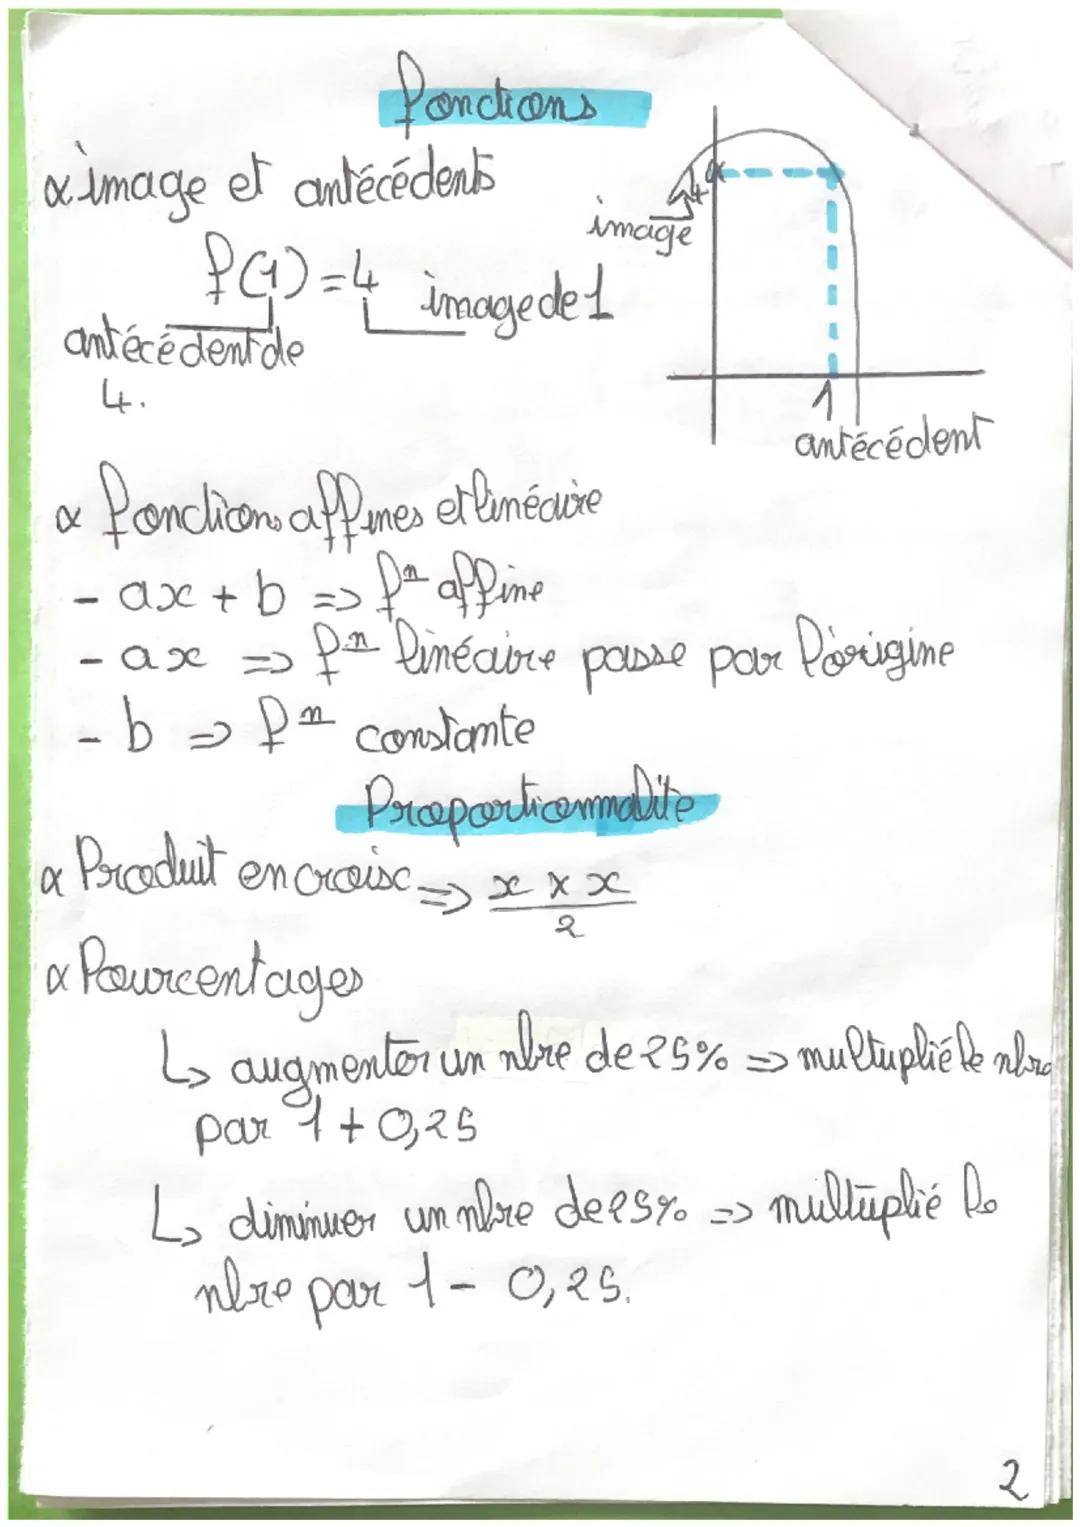 fonctions
× image et antécédents
image
4
f(1) = 4 image de 1
antécédent de
4.
1
antécédent
× fonctions affines et linéaire
- ax + b => fⁿ affine
- ax => fⁿ linéaire passe par l'origine
- b => fⁿ constante
Proportionnalité
× Produit en croix => x × x
2
× Pourcentages
↳ augmenter un nbre de 25% => multiplié le nbre
par 1 + 0,25
↳ diminuer un nbre de 25% => multiplié le
nbre par 1 - 0,25.
2